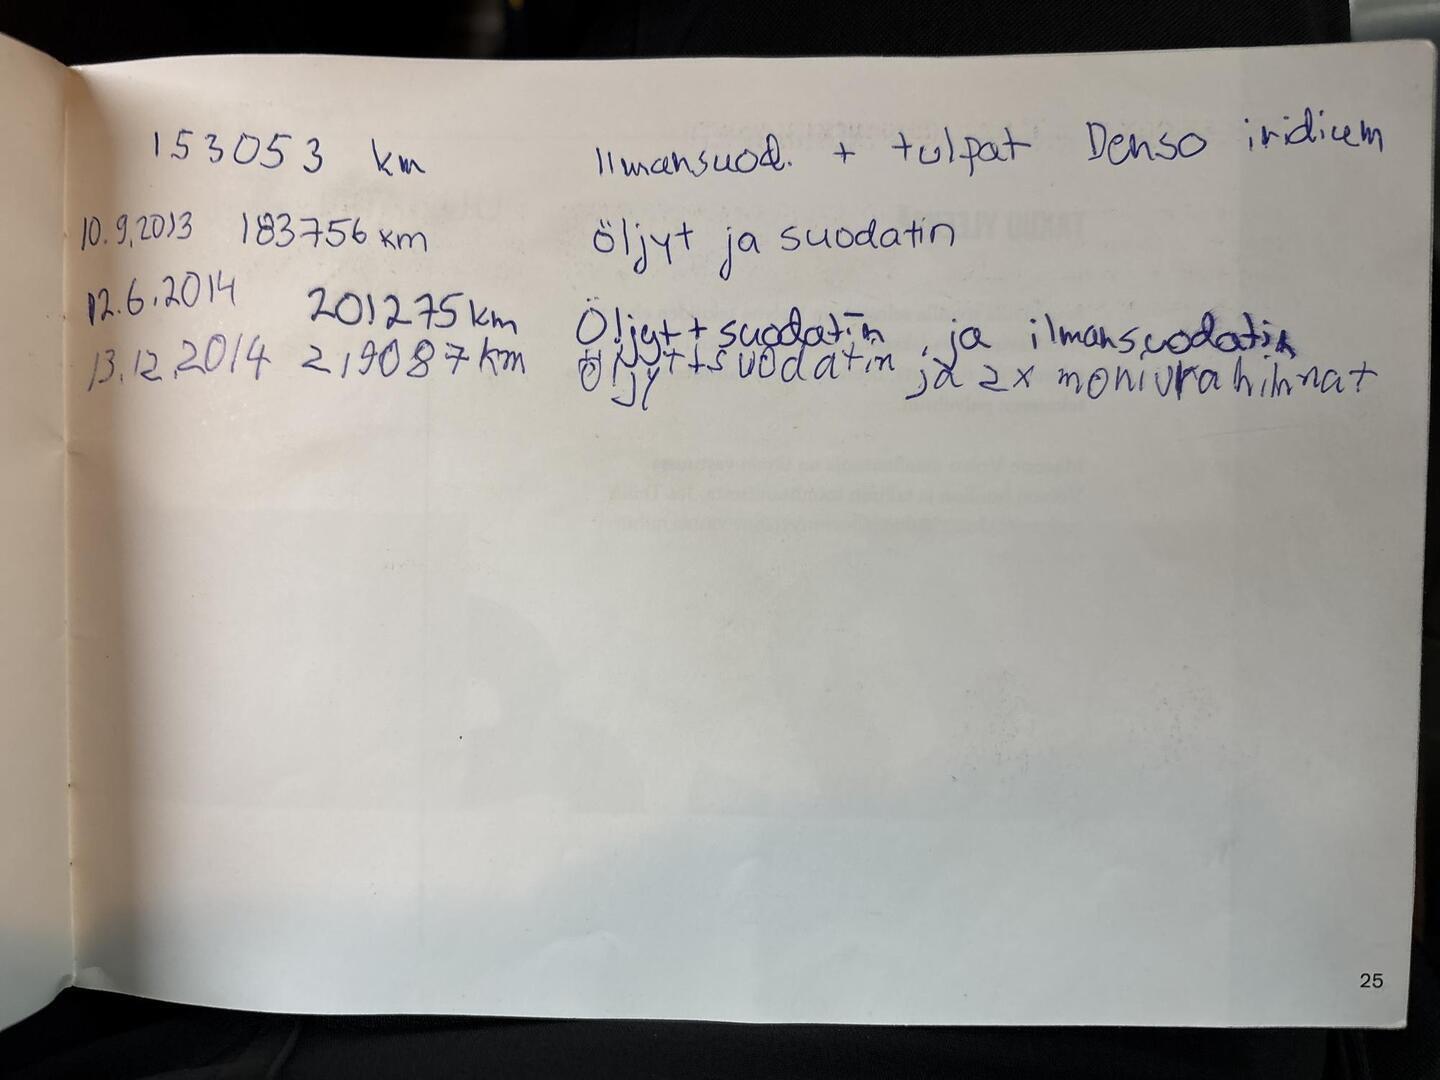 153053 km Ilmansuod. + tulpat Denso iridium
10.9.2013 183756 km Öljyt ja suodatin
12.6.2014 201275 km Öljyt + suodatin ja ilmansuodatin
13.12.2014 219087 km Öljyt + suodatin ja 2x moniurahihnat
25